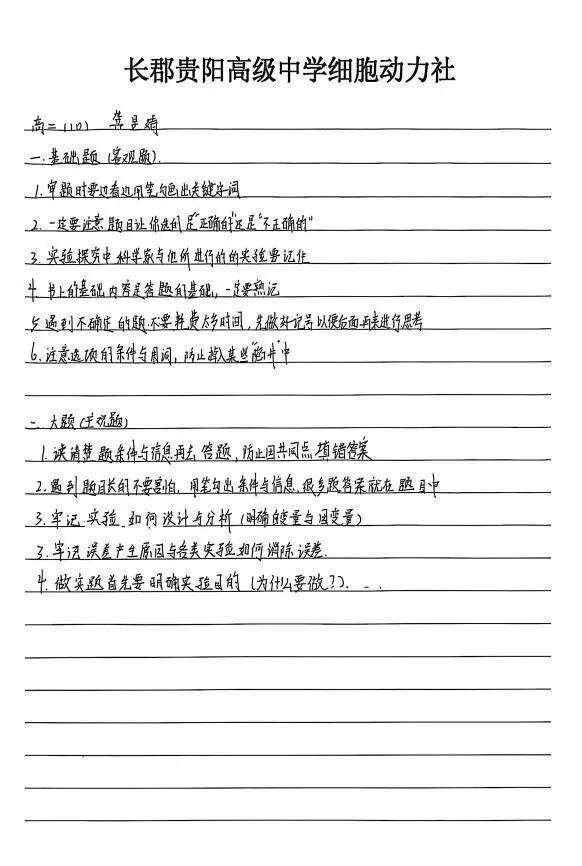 长郡贵阳高级中学细胞动力社
高二(10)
一.基础题(客观题).
1.审题时要边看边用笔勾画出关键字词
2.一定要注意题目让你选的是"正确的"还是"不正确的"
3.实验探究中科学家与他所进行的的实验要记住
4.书上的基础内容是答题的基础,一定要熟记
5.遇到不确定的题不要耗费太多时间,先做好记号以便后面再来进行思考
6.注意选项的条件与用词,防止掉入某些"陷井"中
二.大题(主观题)
1.读清楚题条件与信息再去答题,防止因共同点填错答案
2.遇到题目长的不要害怕,用笔勾出条件与信息.很多题答案就在题目中
3.牢记实验如何设计与分析(明确自变量与因变量)
3.牢记误差产生原因与各类实验如何消除误差.
4.做实题首先要明确实验目的(为什么要做?)...